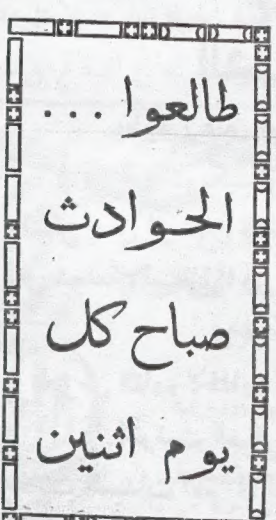 طالعوا ...
الحوادث
صباح كل
يوم اثنين